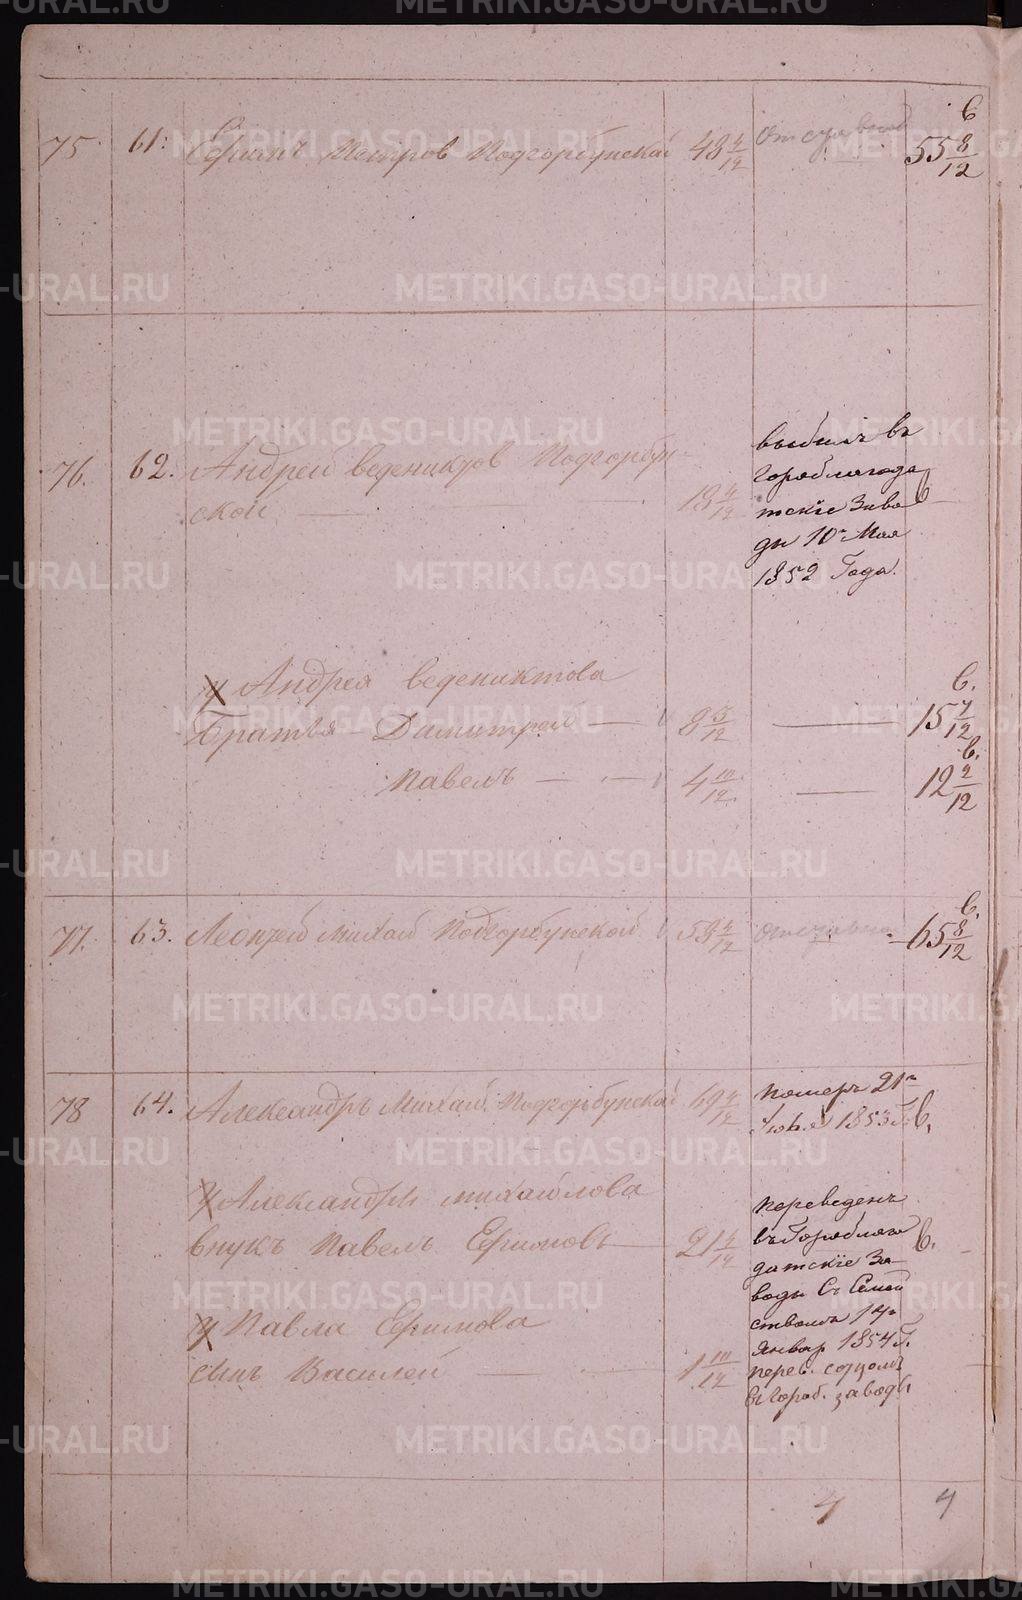 75. 61. Сергианъ Петров Подгорбунской 48 4/12 Отсудно в. 55 8/12
76. 62. Андреи ведениктов Подгорбун-
ской 18 4/12
выбылъ въ
Гороблагода
тскіе Заво в.
ды 10го Мая
1852 Года.
У Андрея ведениктова
Братья Димитрей 8 5/12 в. 15 7/12
Павелъ 4 10/12 в. 12 2/12
77. 63. Леонтей михай Подгорбунской 58 4/12 в. 65 8/12
78 64. Александръ Михай. Подгорбунскай 69 4/12
померъ 21го
1853 Г. в.
У Александры михайлова
внукъ Павелъ Ефимовъ 21 4/12
переведенъ
въ Гороблаго в.
датскіе За
воды Съ Семей
ствомъ 14го
Январ 1854 Г.
У Павла Ефимова
сынъ Василей 1 10/12
перев. с отцомъ
въ Гороб. заводы
4 4
METRIKI.GASO-URAL.RU